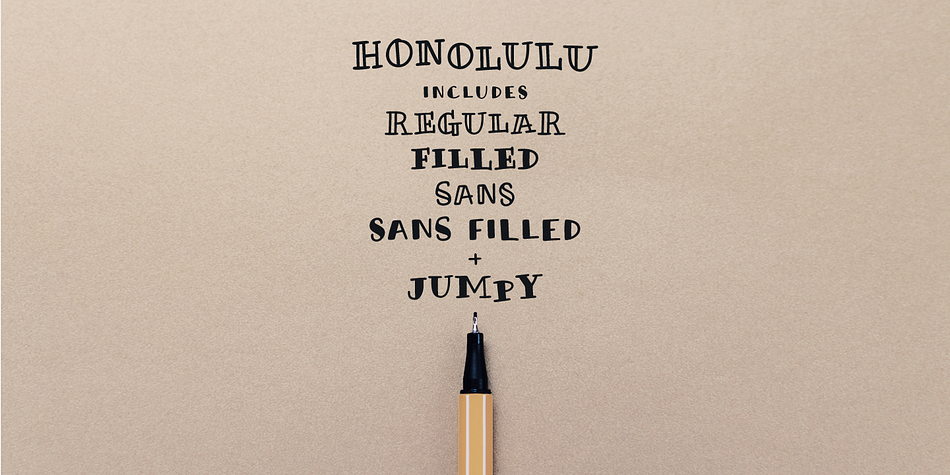 HONOLULU
INCLUDES
REGULAR
FILLED
SANS
SANS FILLED
+
JUMPY